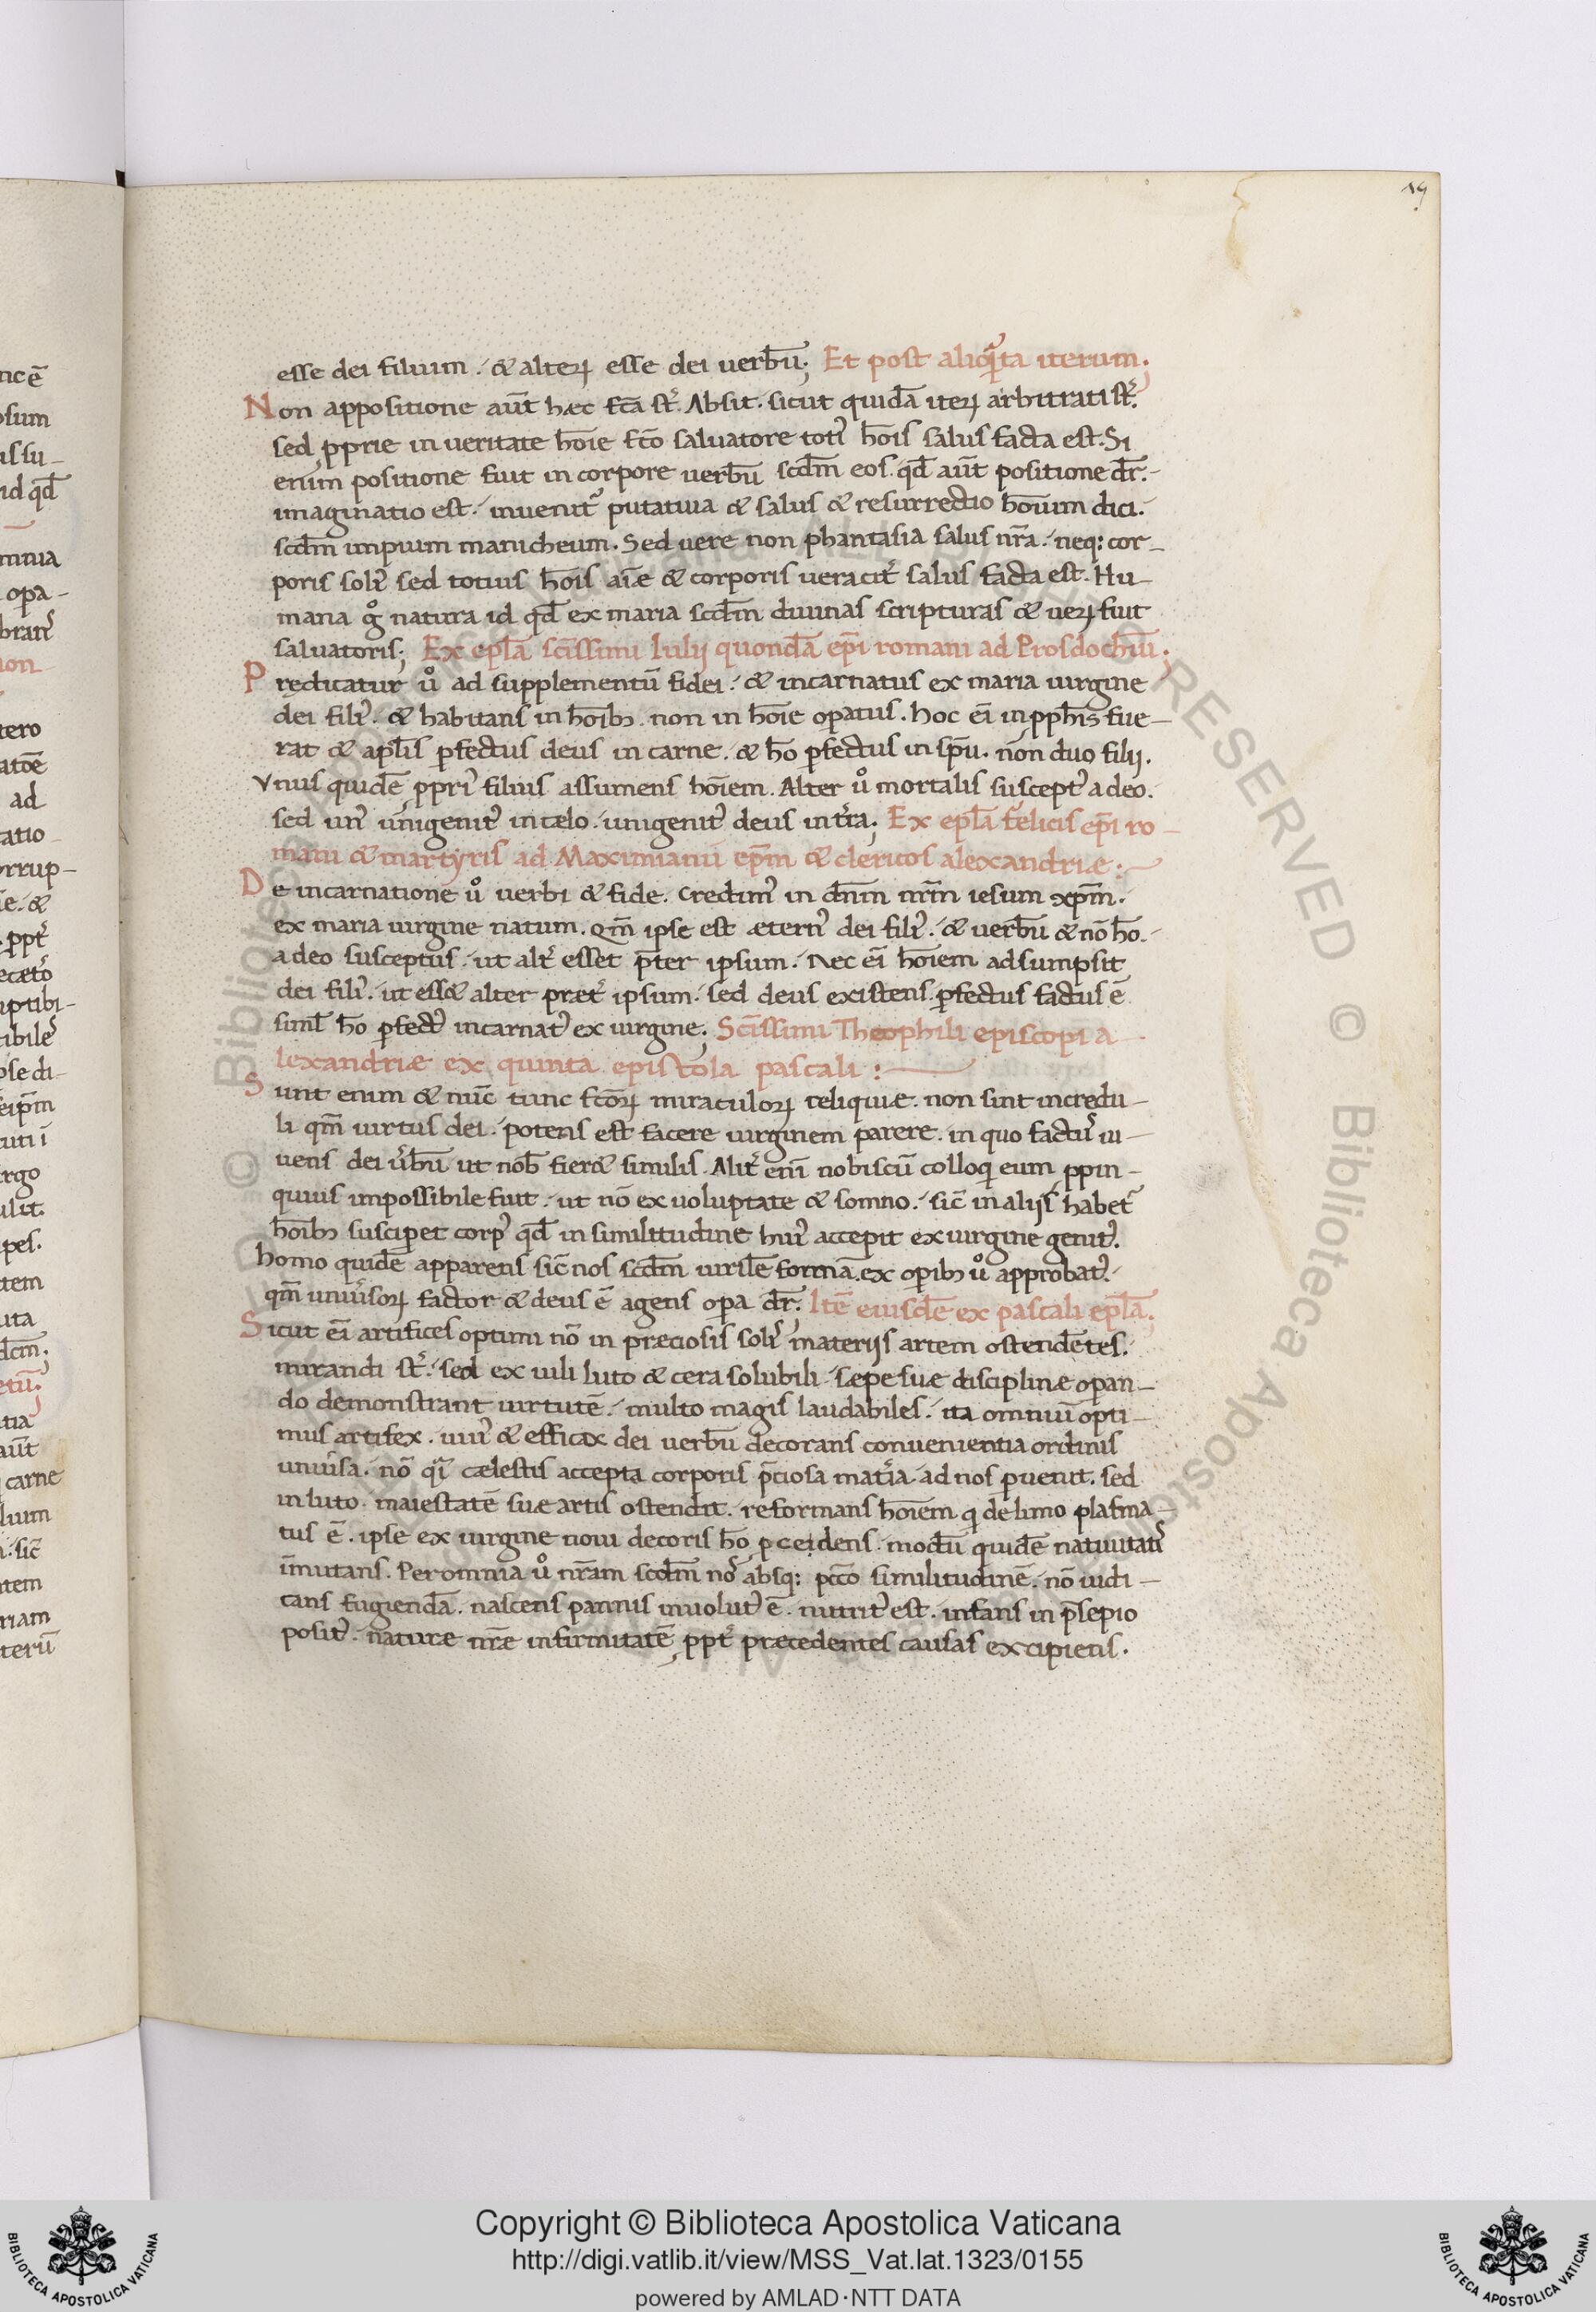 19
esse dei filium. & alterꝝ esse dei uerbū; Et post aliqͣnta iterum;
Non appositione aūt hæc fc̄a st̄. Absit. sicut quidā iterꝝ arbitrati st̄.
sed ꝓprie in ueritate hōie fc̄o saluatore toti᾽ hōis salus facta est. Si
enim positione fuit in corpore uerbū scdm̄ eos. qd̄ aūt positione dr̄.
imaginatio est. inuenit᾽ putatiua & salus & resurrectio hōium dici.
scdm̄ impium manicheum. Sed uere non phantasia salus nr̄a. neq: cor-
poris soli᾽ sed totius hōis aīæ & corporis ueracit᾽ salus facta est. Hu-
mana gͦ natura id qd̄ ex maria scdm̄ diuinas scripturas & uerꝝ fuit
saluatoris; Ex epl̄a sc̄issimi Iulij quondā epī romani ad Prosdochiū;
Predicatur uͦ ad supplementū fidei. & incarnatus ex maria uirgine
dei fili᾽. & habitans in hōibꝫ. non in hōie oꝑatus. hoc eī in ꝓph̄is fue-
rat & apl̄is ꝑfectus deus in carne. & hō ꝑfectus in sp̄u. non duo filij.
Vnus quidē ꝓpri᾽ filius assumens hōiem. Alter uͦ mortalis suscept᾽ a deo.
sed un᾽ unigenit᾽ in cælo. unigenit᾽ deus in t᾽ra; Ex epl̄a felicis epī ro-
mani & martyris ad Maximianū epm̄ & clericos alexandriæ:
De incarnatione uͦ uerbi & fide. Credim᾽ in dn̄m nr̄m iesum xp̄m.
ex maria uirgine natum. qm̄ ipse est ætern᾽ dei fili᾽. & uerbū & nō hō.
a deo susceptus. ut alt᾽ esset p̄ter ipsum. Nec eī hōiem adsumpsit
dei fili᾽. ut ess& alter præt᾽ ipsum. sed deus existens ꝑfectus factus ē
siml̄ hō ꝑfect᾽ incarnat᾽ ex uirgine; Sc̄issimi Theophili episcopi a-
lexandriæ ex quinta epistola pascali:
Sunt enim & nūc tunc fc̄oꝝ miraculoꝝ reliquiæ. non sint incredu-
li qm̄ uirtus dei. potens est facere uirginem parere. in quo factū ui-
uens dei u᾽bū ut nob̄ fier& similis. Alit᾽ enī nobiscū colloqi eum ꝓpin-
quius impossibile fuit. ut nō ex uoluptate & somno. sic̄ in alijs habet᾽
hōibꝫ susciperet corp᾽ qd̄ in similitudine hui᾽ accepit ex uirgine genit᾽.
homo quidē apparens sic̄ nos scdm̄ uirilē formā. ex oꝑibꝫ uͦ approbat᾽.
qm̄ uniu᾽soꝝ factor & deus ē agens oꝑa dr̄; Itē eiusdē ex pascali epl̄a;
Sicut eī artifices optimi nō in præciosis soli᾽ materijs artem ostendētes.
mirandi st̄. sed ex uili luto & cera solubili. sæpe suæ disciplinæ oꝑan-
do demonstrant uirtutē. multo magis laudabiles. ita omniū opti-
mus artifex. uiu᾽ & efficax dei uerbū decorans conuenientia ordinis
uniu᾽sa. nō qͣi cælestis accepta corporis p̄ciosa mat᾽ia. ad nos ꝑuenit. sed
in luto. maiestatē suæ artis ostendit. reformans hōiem qi de limo plasma-
tus ē. ipse ex uirgine noui decoris hō ꝓcedens. modū quidē natiuitatis
īmutans. Per omnia uͦ nr̄am scdm̄ nos absq: pc̄co similitudinē. nō iudi-
cans fugiendā. nascens pannis inuolut᾽ ē. nutrit᾽ est. infans in p̄sepio
posit᾽. naturæ nr̄æ infirmitatē ꝓpt᾽ præcedentes causas excipiens.
Copyright © Biblioteca Apostolica Vaticana
http://digi.vatlib.it/view/MSS_Vat.lat.1323/0155
powered by AMLAD·NTT DATA
BIBLIOTECA APOSTOLICA VATICANA
BIBLIOTECA APOSTOLICA VATICANA